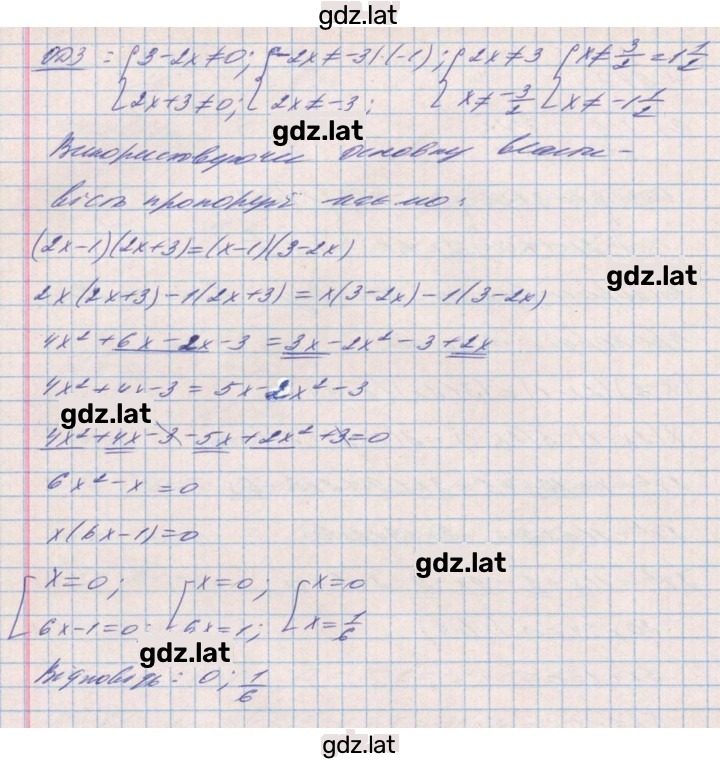 gdz.lat
ОДЗ: { 3-2x≠0; { -2x≠-3|·(-1); { 2x≠3 { x≠3/2=1 1/2
{ 2x+3≠0; { 2x≠-3; { x≠-3/2 { x≠-1 1/2
gdz.lat
Використовуючи основну власти-
вість пропорції маємо:
(2x-1)(2x+3)=(x-1)(3-2x)
gdz.lat
2x(2x+3)-1(2x+3)=x(3-2x)-1(3-2x)
4x²+6x-2x-3=3x-2x²-3+2x
4x²+4x-3=5x-2x²-3
gdz.lat
4x²+4x-3-5x+2x²+3=0
6x²-x=0
x(6x-1)=0
gdz.lat
[ x=0; [ x=0; [ x=0
6x-1=0; 6x=1; x=1/6
gdz.lat
Відповідь: 0; 1/6
gdz.lat